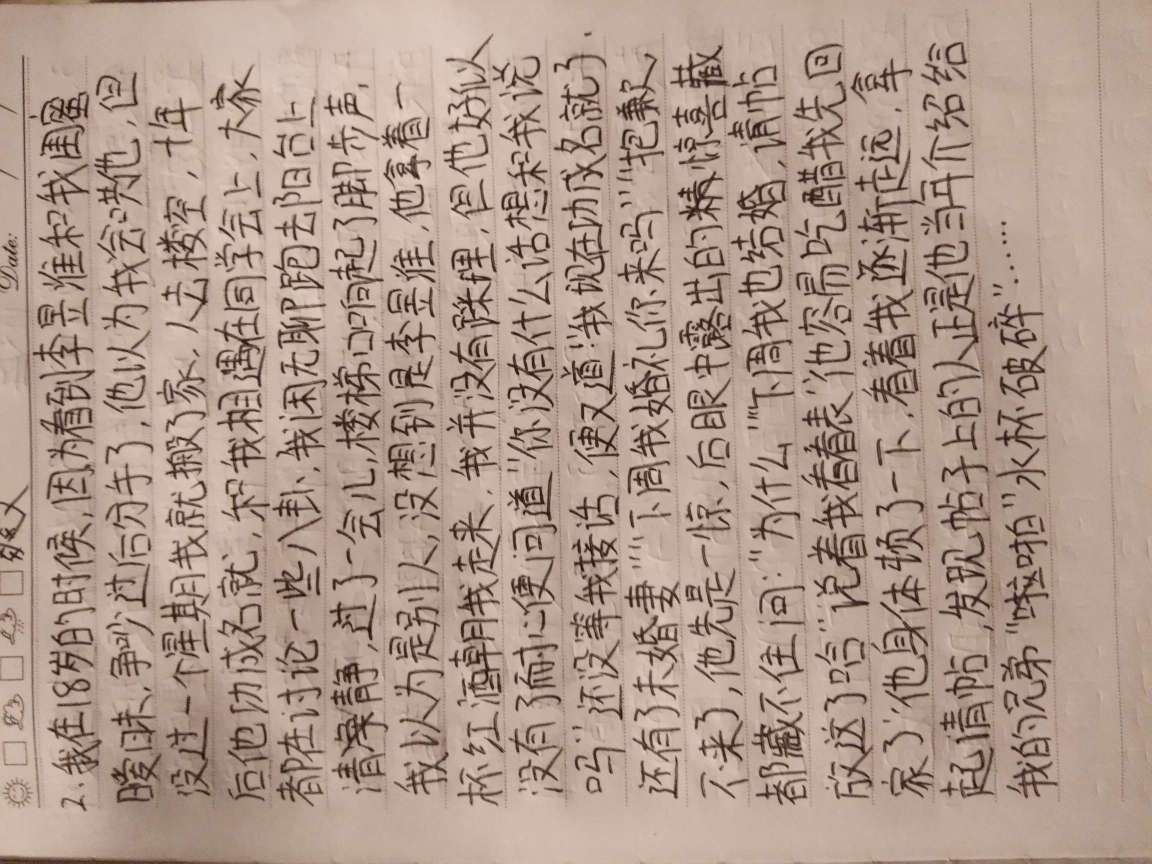 Date: / /
2.我在18岁的时候,因为看到李昱淮和我闺蜜
暧昧、争吵过后分手了,他以为我会哄他,但
没过一个星期我就搬了家、人去楼空,十年
后他功成名就,和我相遇在同学会上,大家
都在讨论一些八卦、我困无聊跑去阳台上
清净静静,过了一会儿,楼梯口响起了脚步声,
我以为是别人,没想到是李昱淮,他拿着一
杯红酒朝我走来、我并没有睬理,但他好似
没有了耐心便问道“你没有什么话想和我说
吗”还没等我接话,便又道“我现在功成名就了,
还有了未婚妻”“下周我婚礼你来吗”“抱歉,
不来了,他先是一惊,后眼中露出的精惊喜藏
都藏不住问:“为什么”“下周我也结婚,请帖
放这了哈”说着我看着表“他容易吃醋我先回
家了”他身体顿了一下,看着我逐渐走远,拿
起请帖,发现帖子上的人正是他当年介绍给
我的兄弟“啪啦”水杯破碎”……